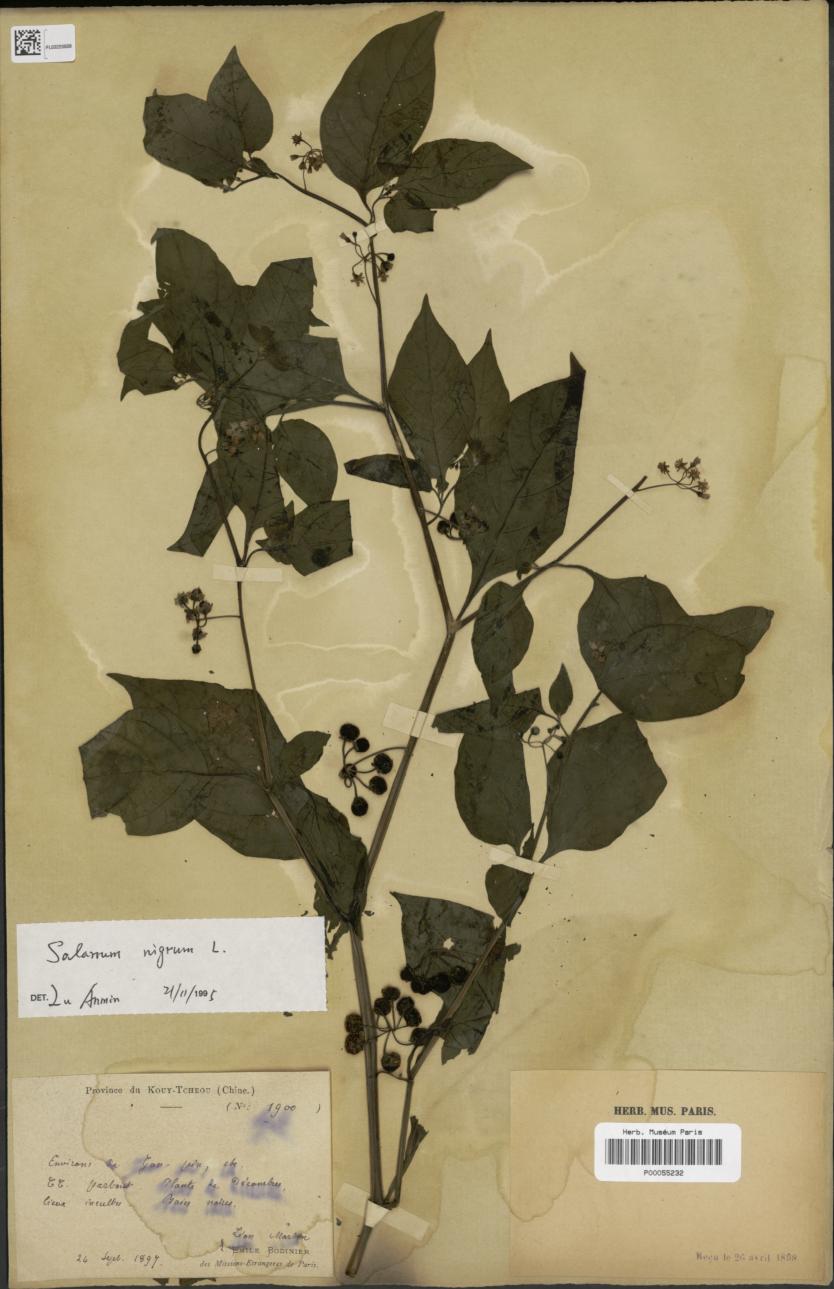 Solanum nigrum L.
DET. Lu Anmin 21/11/1995
Province du KOUY-TCHEOU (Chine.)
(No: 1900 )
Environs de
partout Plante de Décombres.
lieux incultes Baies noires.
Léon Martin
EMILE BODINIER
24 Sept. 1897.
des Missions-Etrangères de Paris.
HERB. MUS. PARIS.
Herb. Muséum Paris
P00055232
Reçu le 26 avril 1898